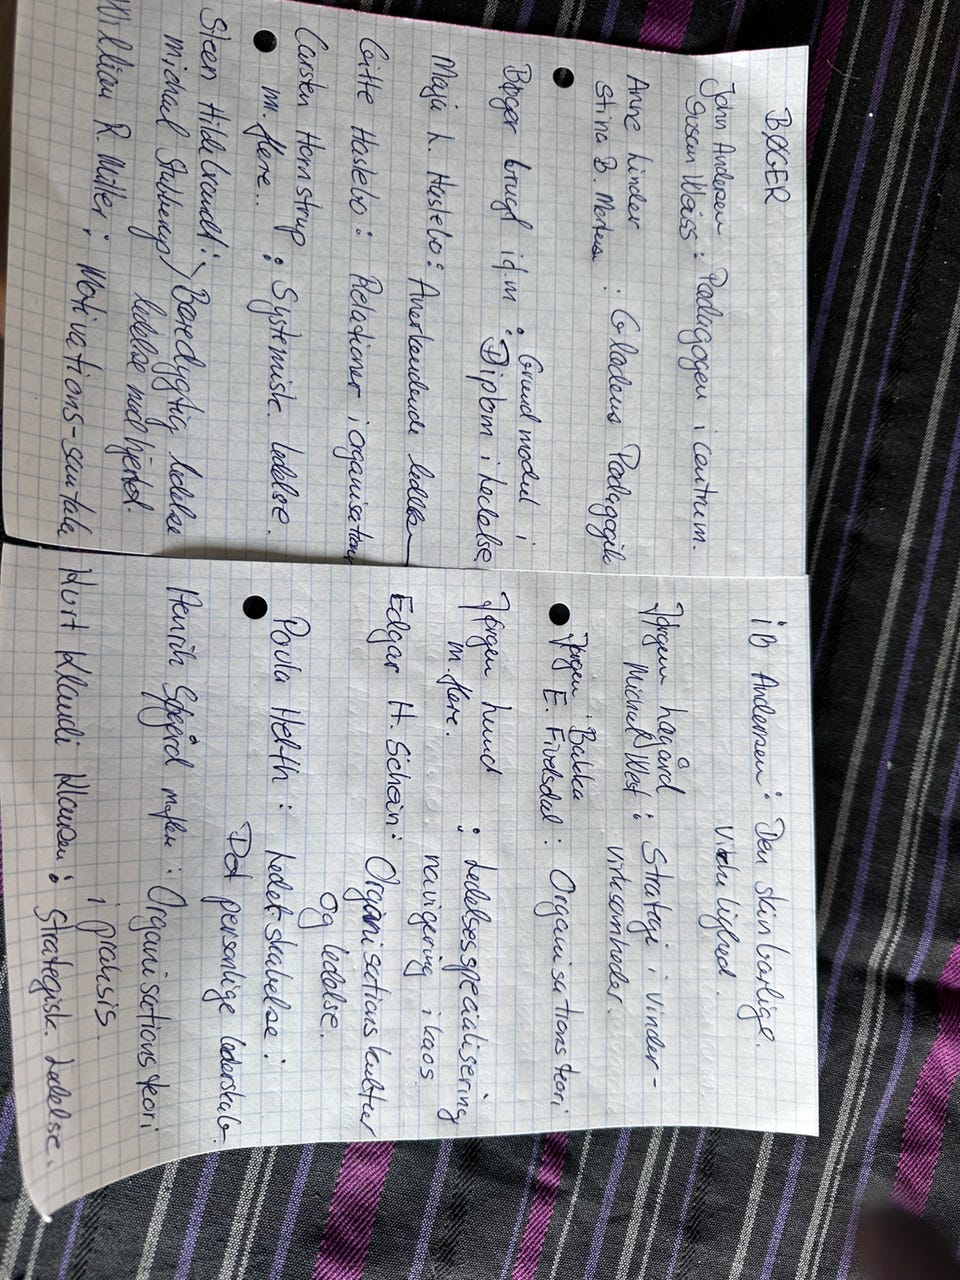 BØGER
John Andersen
Susan Weiss : Pædagogen i centrum.
Anne Linder
Stine B. : Glædens Pædagogik
Bøger brugt ifm : Grundmodul i
Diplom i Ledelse
Maja L. Hastebo : Anerkendende ledelse
Gitte Haslebo : Relationer i organisationer
Carsten Hornstrup : Systemisk ledelse.
m. flere..
Steen Hildebrandt : Bæredygtig ledelse
Michael Stubberup ledelse med hjertet.
William R. Miller : Motivations-samtale
iB Andersen : Den skinbarlige
virkelighed.
Jørgen Lægård
Michael West : Strategi i vinder-
virksomheder.
Jørgen Bakka
E. Fivelsdal : Organisationsteori
Jørgen Lund : Ledelsesspecialisering
m. flere. navigering i kaos
Edgar H. Schein : Organisationskultur
og ledelse.
Poula Helth : Lederskabelse :
Det personlige lederskab.
Henrik m.flere : Organisationsteori
i praksis.
Kurt Klaudi Klausen : Strategisk Ledelse.